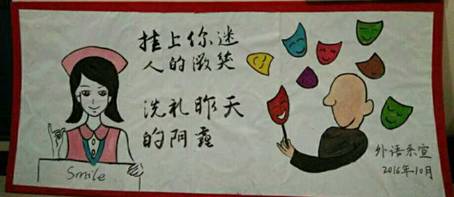 挂上你迷
人的微笑
洗礼昨天
的阴霾
Smile
外语系宣
2016年10月